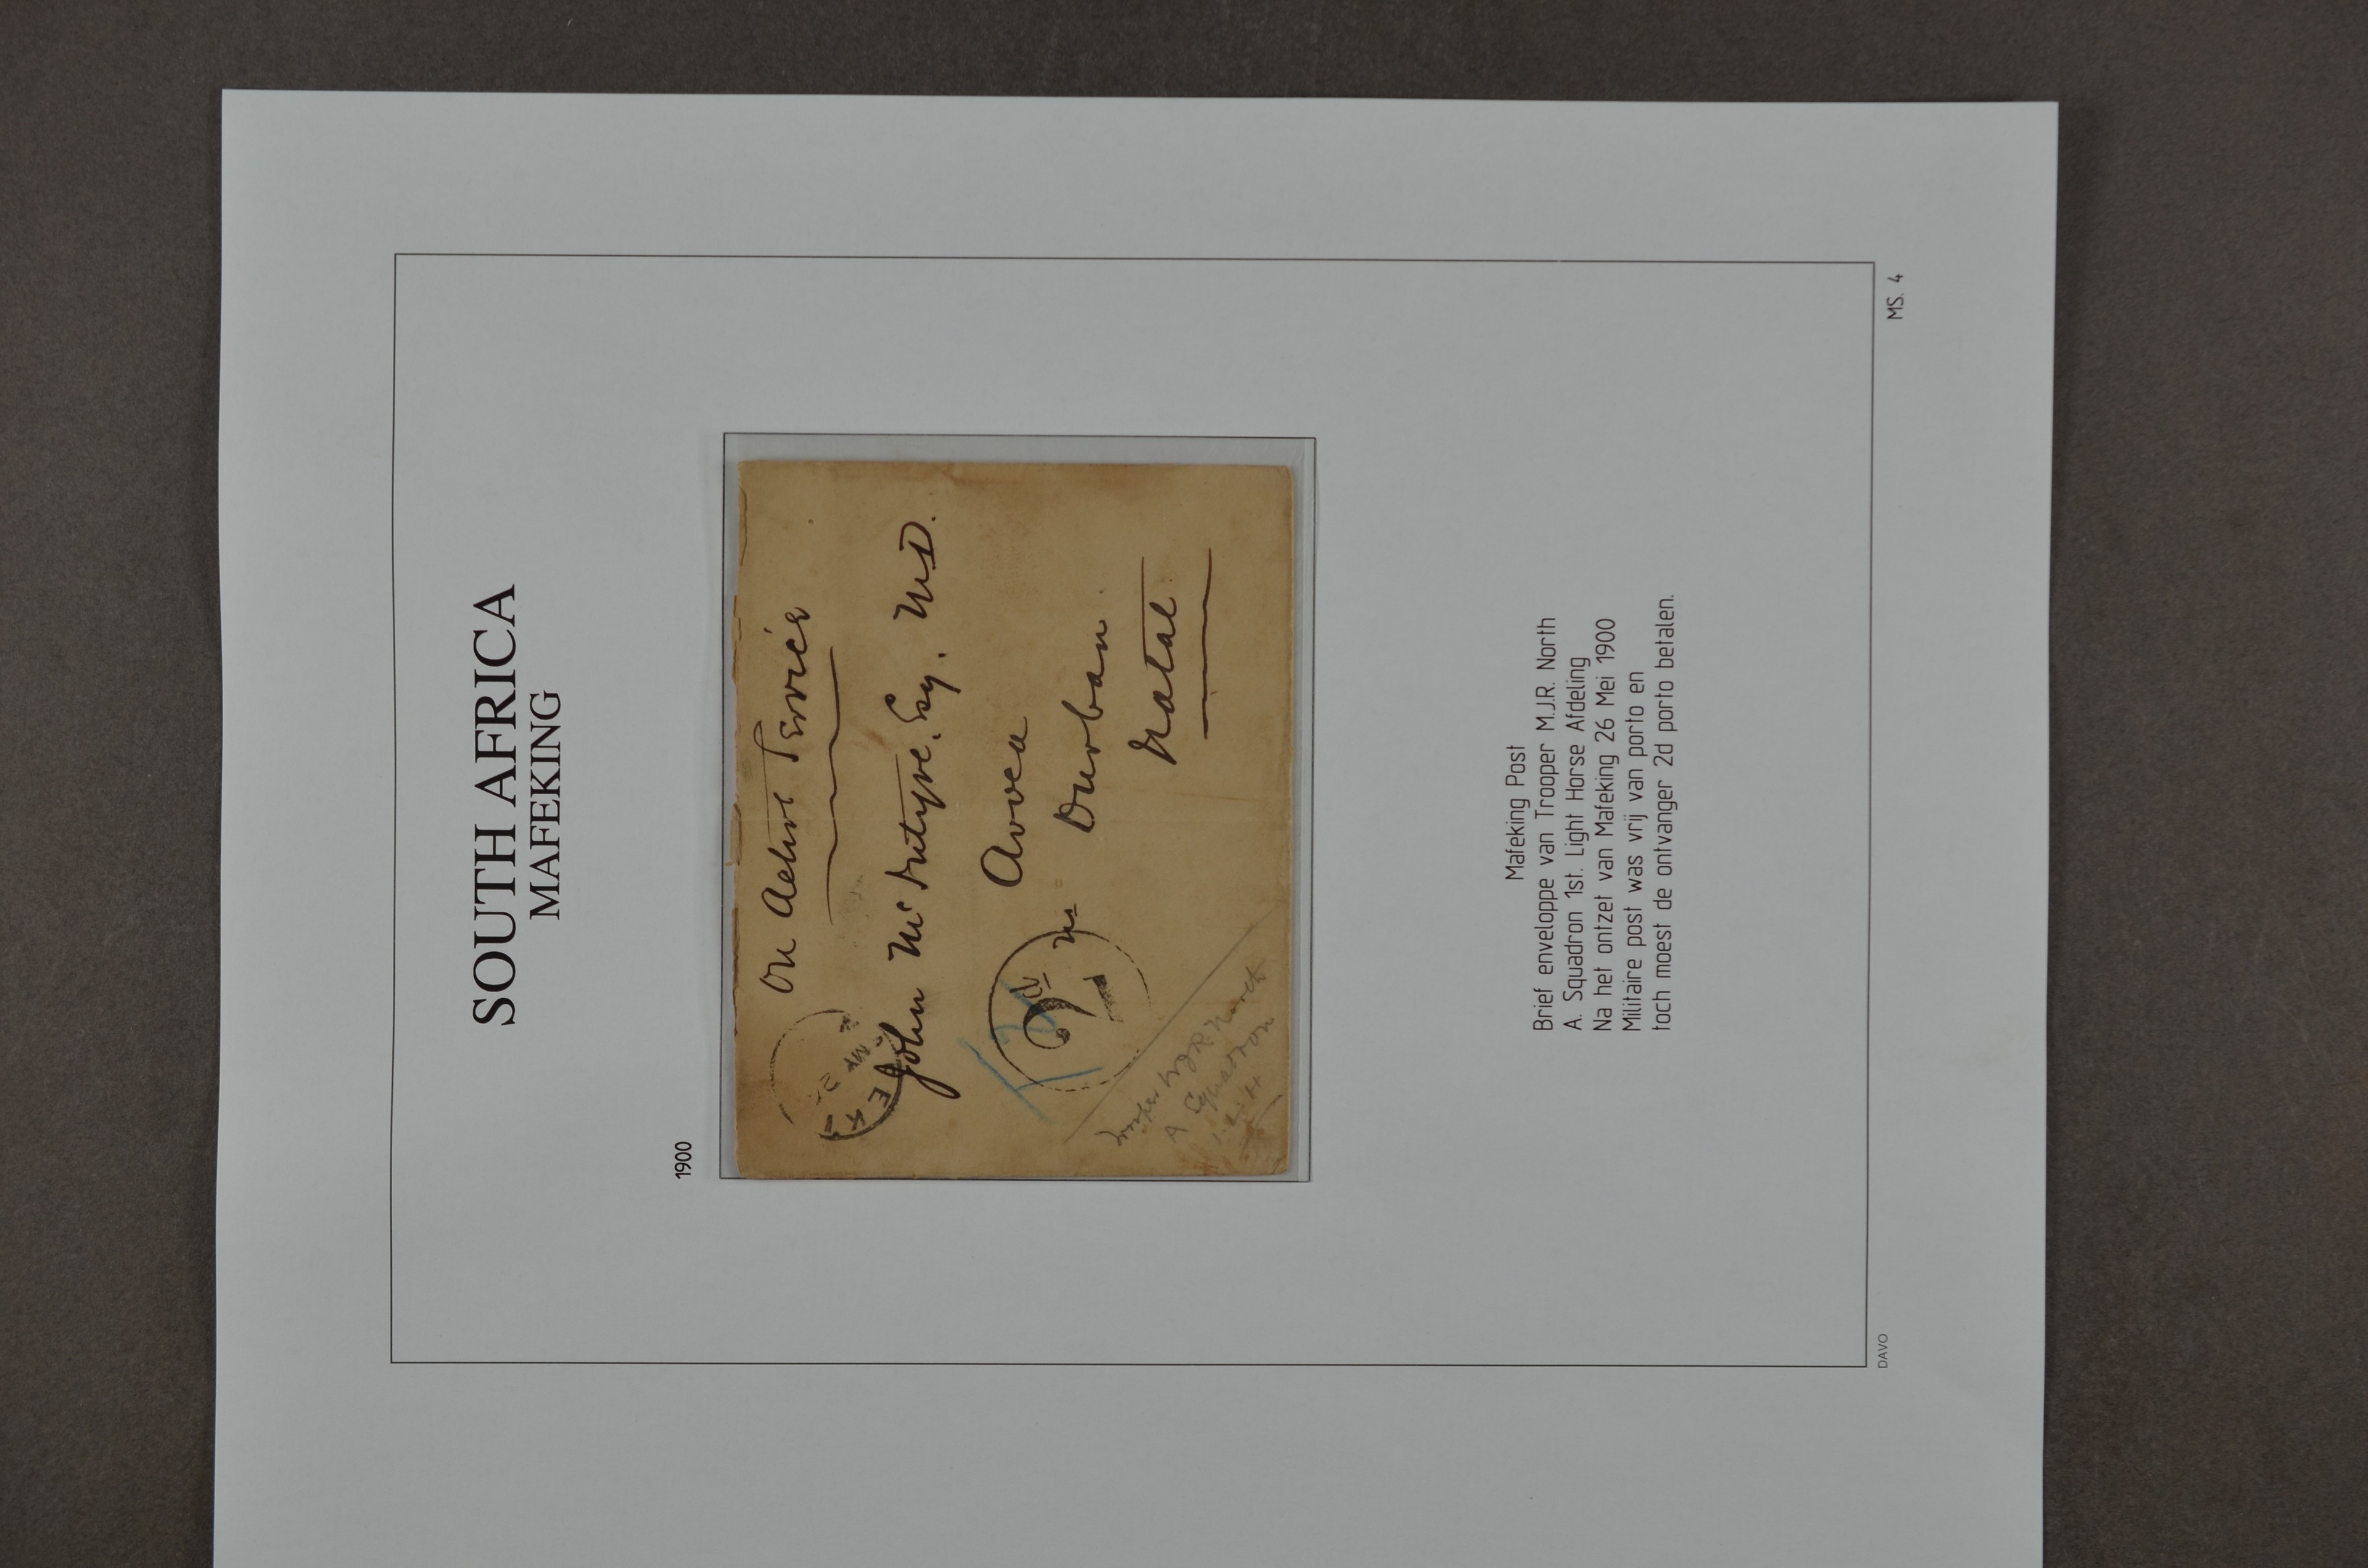 SOUTH AFRICA
MAFEKING
1900
On Active Service
John McIntyre. Esq. MD.
Avoca
Nr Durban.
Natal.
2d
MY 2
A Squadron
Mafeking Post
Brief enveloppe van Trooper M.J.R. North
A. Squadron 1st. Light Horse Afdeling
Na het ontzet van Mafeking 26 Mei 1900
Militaire post was vrij van porto en
toch moest de ontvanger 2d porto betalen.
DAVO
MS. 4